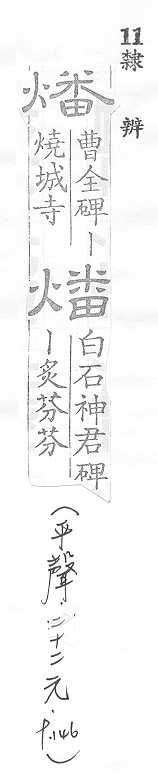 11隸辨
燔
曹全碑｜
燒城寺
燔
白石神君碑
｜炙芬芬
（平聲．二十二元．P.146）